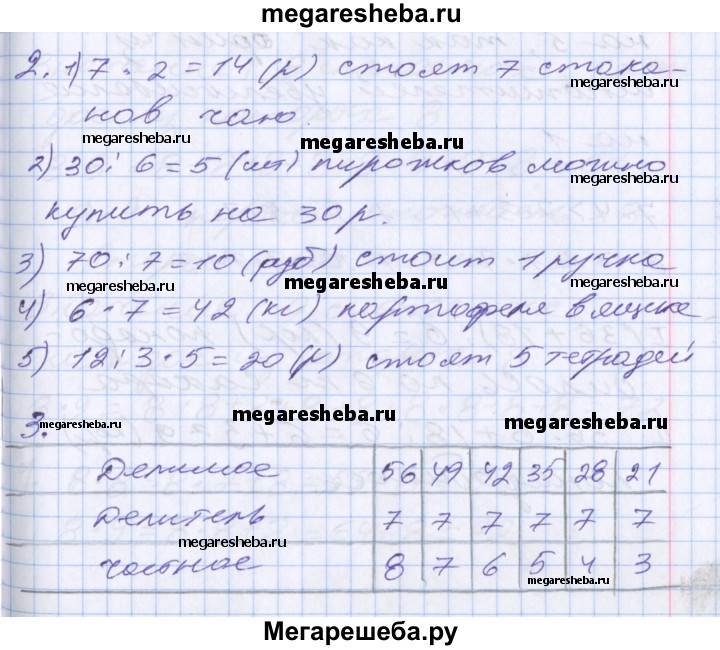 megaresheba.ru
2. 1) 7 · 2 = 14 (р) стоят 7 стака-
нов чаю.
megaresheba.ru
megaresheba.ru
megaresheba.ru
2) 30 : 6 = 5 (шт) пирожков можно
megaresheba.ru
megaresheba.ru
купить на 30 р.
3) 70 : 7 = 10 (руб) стоит 1 ручка
megaresheba.ru
megaresheba.ru
megaresheba.ru
4) 6 · 7 = 42 (кг) картофеля в ящике
5) 12 : 3 · 5 = 20 (р) стоят 5 тетрадей
megaresheba.ru
megaresheba.ru
megaresheba.ru
3.
Делимое 56 49 42 35 28 21
Делитель 7 7 7 7 7 7
megaresheba.ru
Частное 8 7 6 5 4 3
megaresheba.ru
Мегарешеба.ру